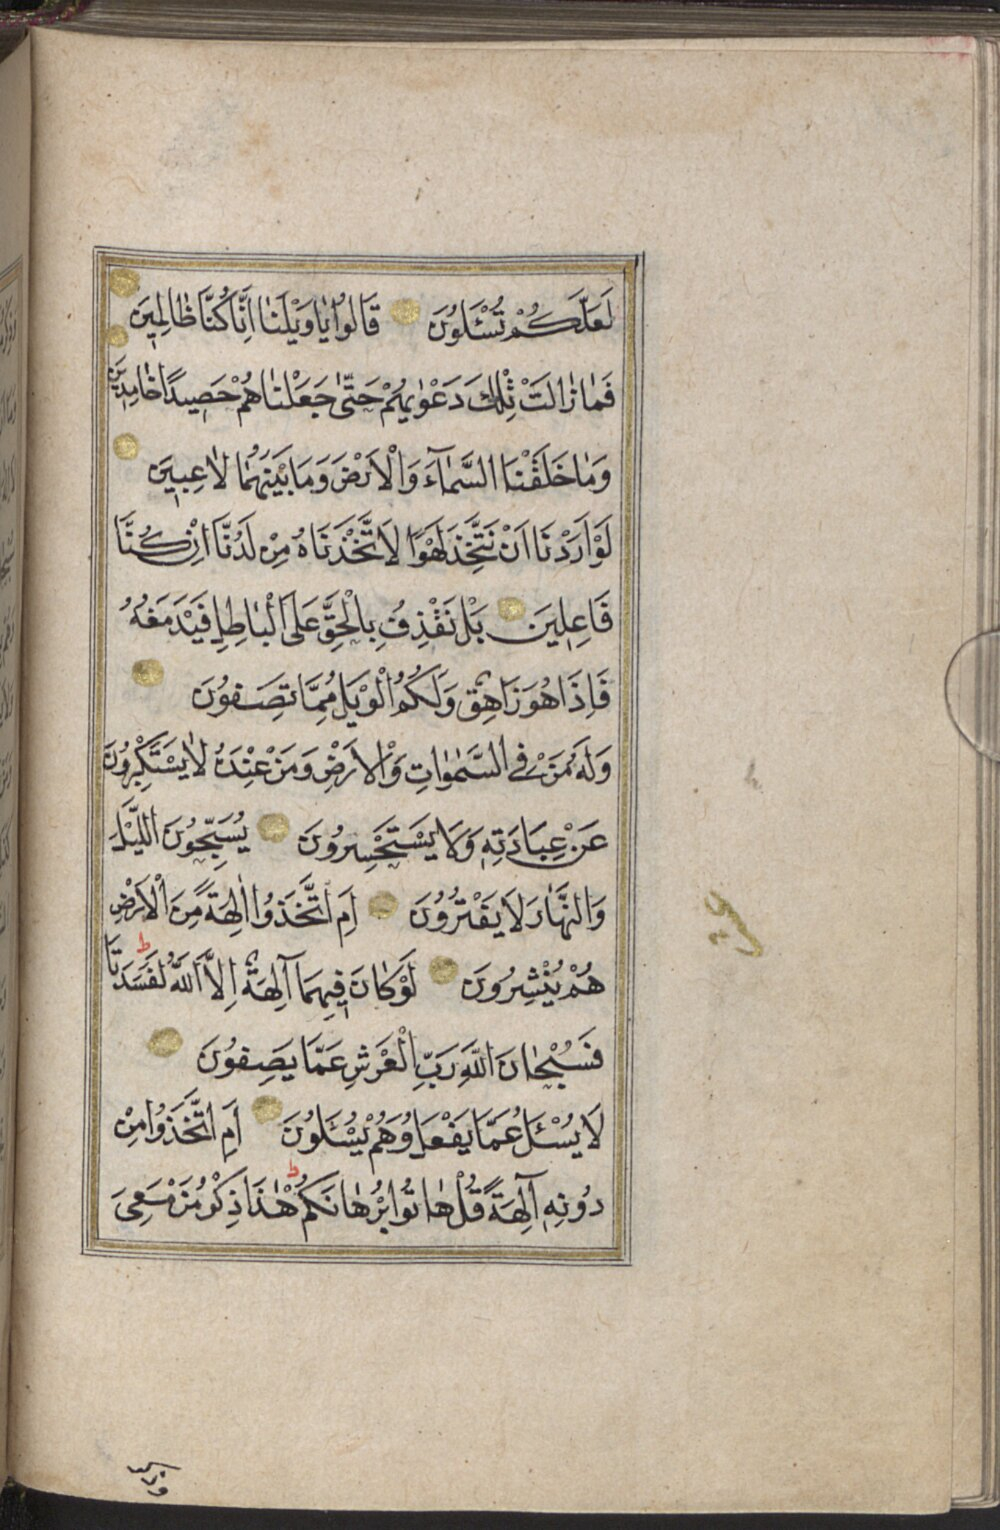 لَعَلَّكُمْ تُسْئَلُونَ قَالُوا يَا وَيْلَنَا اِنَّا كُنَّا ظَالِمِينَ
فَمَا زَالَتْ تِلْكَ دَعْوٰيهُمْ حَتّٰى جَعَلْنَاهُمْ حَصِيدًا خَامِدِينَ
وَمَا خَلَقْنَا السَّمَآءَ وَالْاَرْضَ وَمَا بَيْنَهُمَا لَاعِبِينَ
لَوْ اَرَدْنَا اَنْ نَتَّخِذَ لَهْوًا لَاتَّخَذْنَاهُ مِنْ لَدُنَّا اِنْ كُنَّا
فَاعِلِينَ بَلْ نَقْذِفُ بِالْحَقِّ عَلَى الْبَاطِلِ فَيَدْمَغُهُ
فَاِذَا هُوَ زَاهِقٌ وَلَكُمُ الْوَيْلُ مِمَّا تَصِفُونَ
وَلَهُ مَنْ فِى السَّمٰوَاتِ وَالْاَرْضِ وَمَنْ عِنْدَهُ لَا يَسْتَكْبِرُونَ
عَنْ عِبَادَتِهِ وَلَا يَسْتَحْسِرُونَ يُسَبِّحُونَ اللَّيْلَ
وَالنَّهَارَ لَا يَفْتُرُونَ اَمِ اتَّخَذُوا اٰلِهَةً مِنَ الْاَرْضِ
هُمْ يُنْشِرُونَ لَوْ كَانَ فِيهِمَا آلِهَةٌ اِلَّا اللّٰهُ لَفَسَدَتَا ط
فَسُبْحَانَ اللّٰهِ رَبِّ الْعَرْشِ عَمَّا يَصِفُونَ
لَا يُسْئَلُ عَمَّا يَفْعَلُ وَهُمْ يُسْئَلُونَ اَمِ اتَّخَذُوا مِنْ
دُونِهِ آلِهَةً قُلْ هَاتُوا بُرْهَانَكُمْ ط هٰذَا ذِكْرُ مَنْ مَعِىَ